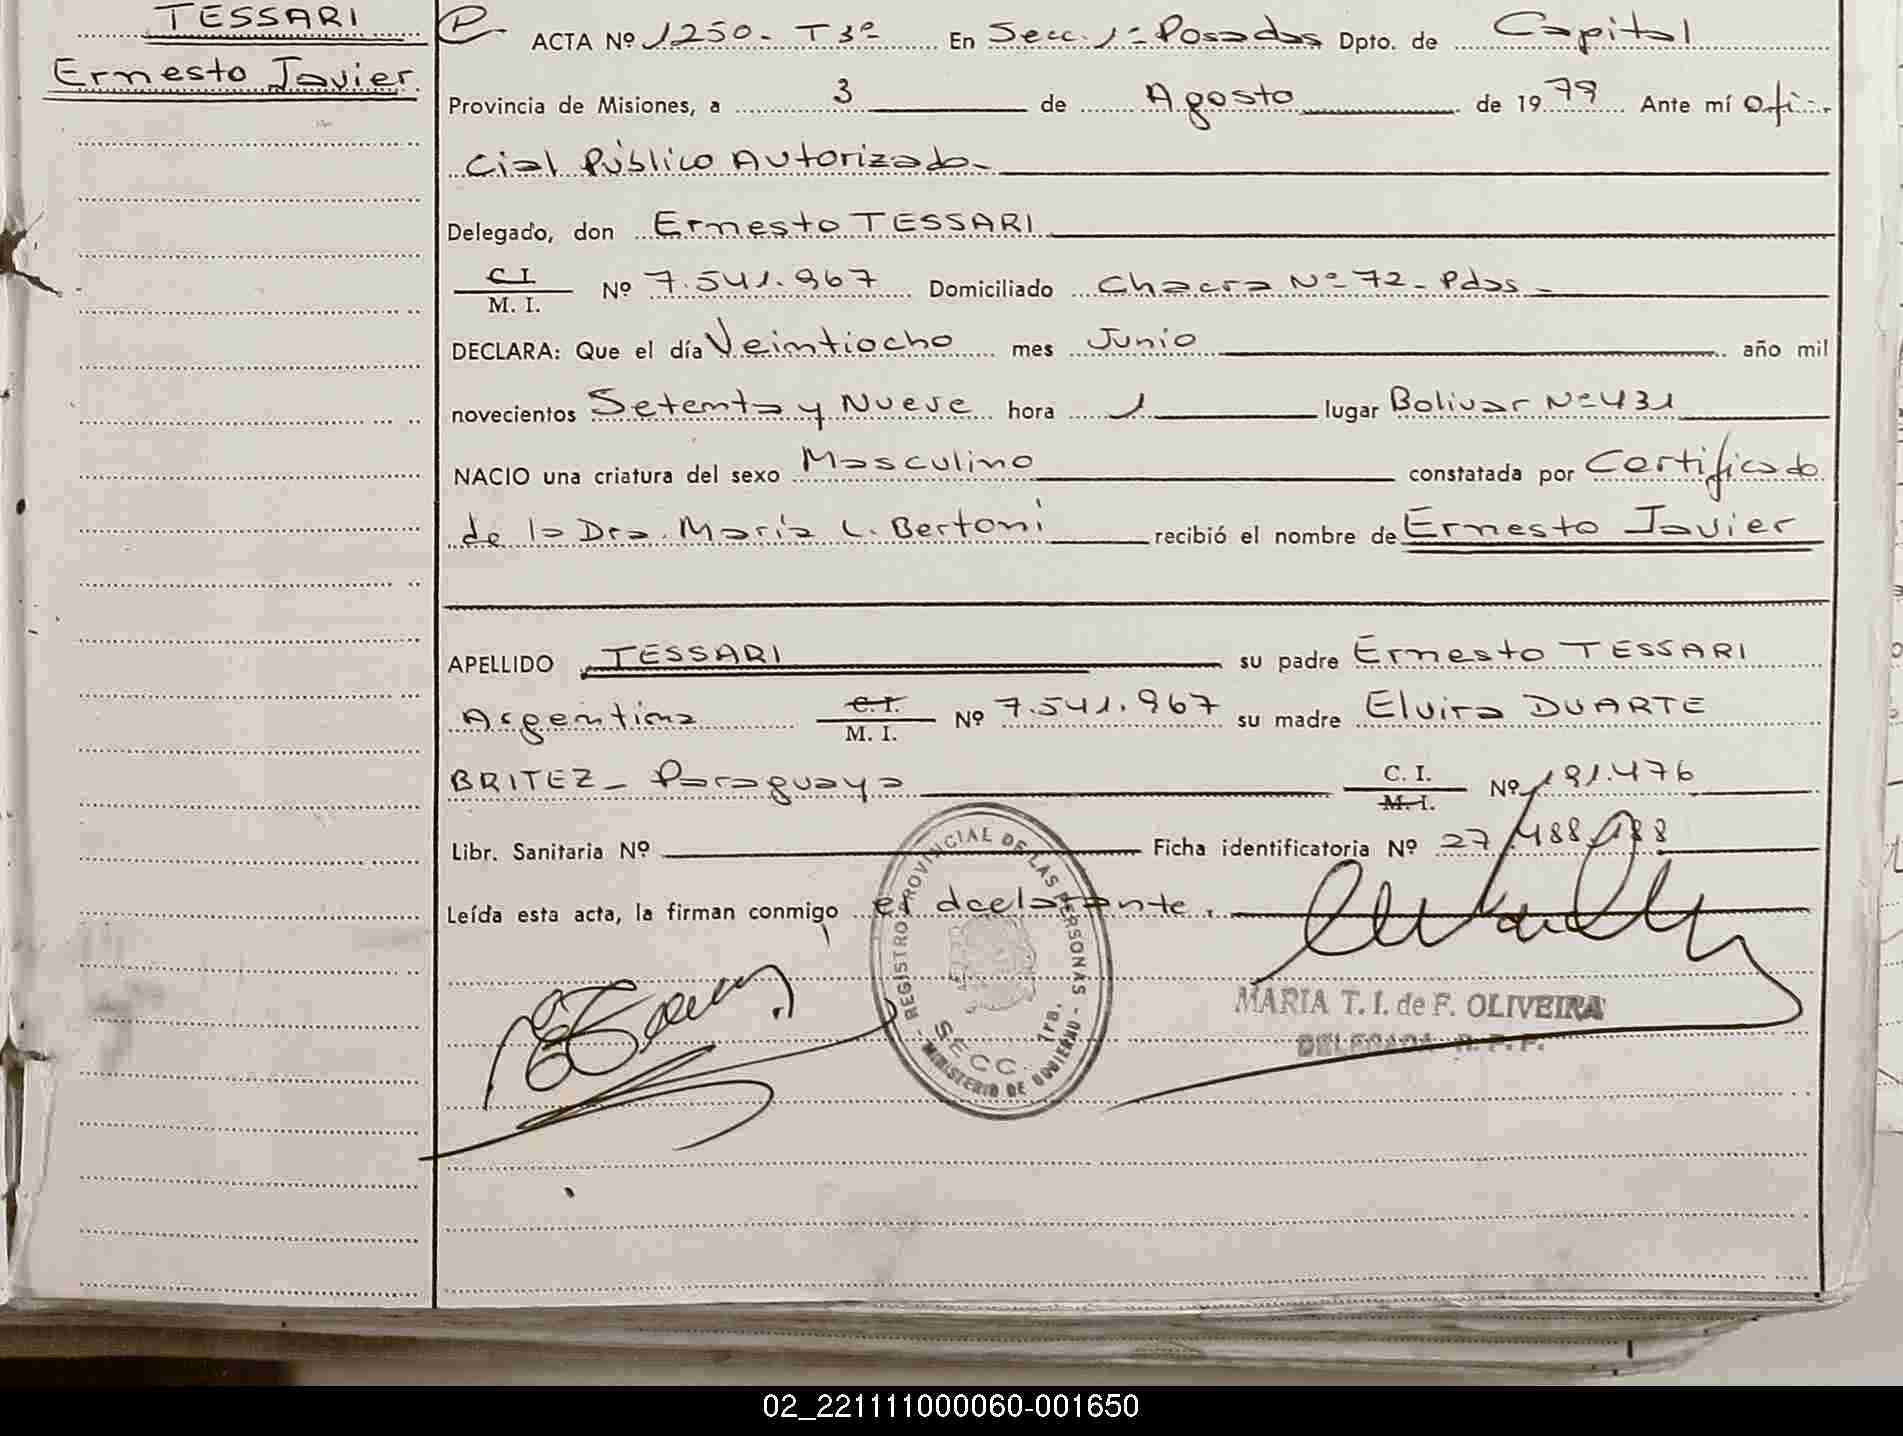 TESSARI
Ernesto Javier
ACTA Nº 1250- T 3º En Secc. 1º Posadas Dpto. de Capital
Provincia de Misiones, a 3 de Agosto de 1979 Ante mí Ofi-
cial Público Autorizado-
Delegado, don Ernesto TESSARI
C.I. M. I. Nº 7.541.967 Domiciliado Chacra Nº 72- Pdas-
DECLARA: Que el día Veintiocho mes Junio año mil
novecientos Setenta y Nueve hora 1 lugar Bolivar Nº 431
NACIO una criatura del sexo Masculino constatada por Certificado
de la Dra. María L. Bertoni recibió el nombre de Ernesto Javier
APELLIDO TESSARI su padre Ernesto TESSARI
Argentino C. I. M. I. Nº 7.541.967 su madre Elvira DUARTE
BRITEZ- Paraguaya C. I. M. I. Nº 191.476
Libr. Sanitaria Nº Ficha identificatoria Nº 27.488.188
Leída esta acta, la firman conmigo el declarante.
REGISTRO PROVINCIAL DE LAS PERSONAS - MINISTERIO DE GOBIERNO -
SECC. 1ra.
MARIA T. I. de F. OLIVEIRA
DELEGADA R. P. P.
02_221111000060-001650